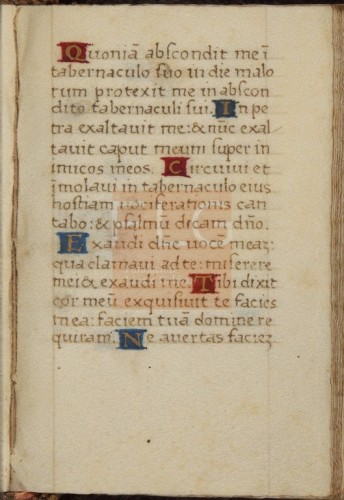 Quoniã abscondit me ĩ
tabernaculo suo in die malo
rum protexit me in abscon
dito tabernaculi sui. In pe
tra exaltavit me: & nũc exal
tavit caput meum super in
imicos meos. Circuivi et
ĩmolavi in tabernaculo eius
hostiam vociferationis can
tabo: & psalmũ dicam dño.
Exaudi dñe vocẽ meaz:
qua clamavi ad te: miserere
mei & exaudi me. Tibi dixit
cor meũ exquisivit te facies
mea: faciem tuã domine re
quiram. Ne avertas faciez